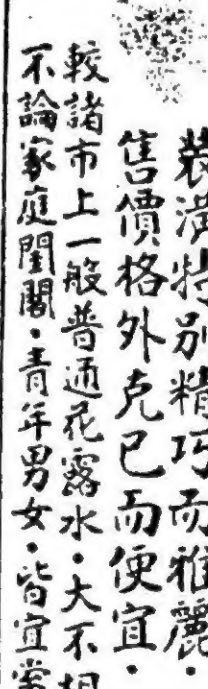 裝潢特別精巧而雅麗·
售價格外克已而便宜·
較諸市上一般普通花露水·大不相
不論家庭閨閣·青年男女·皆宜常